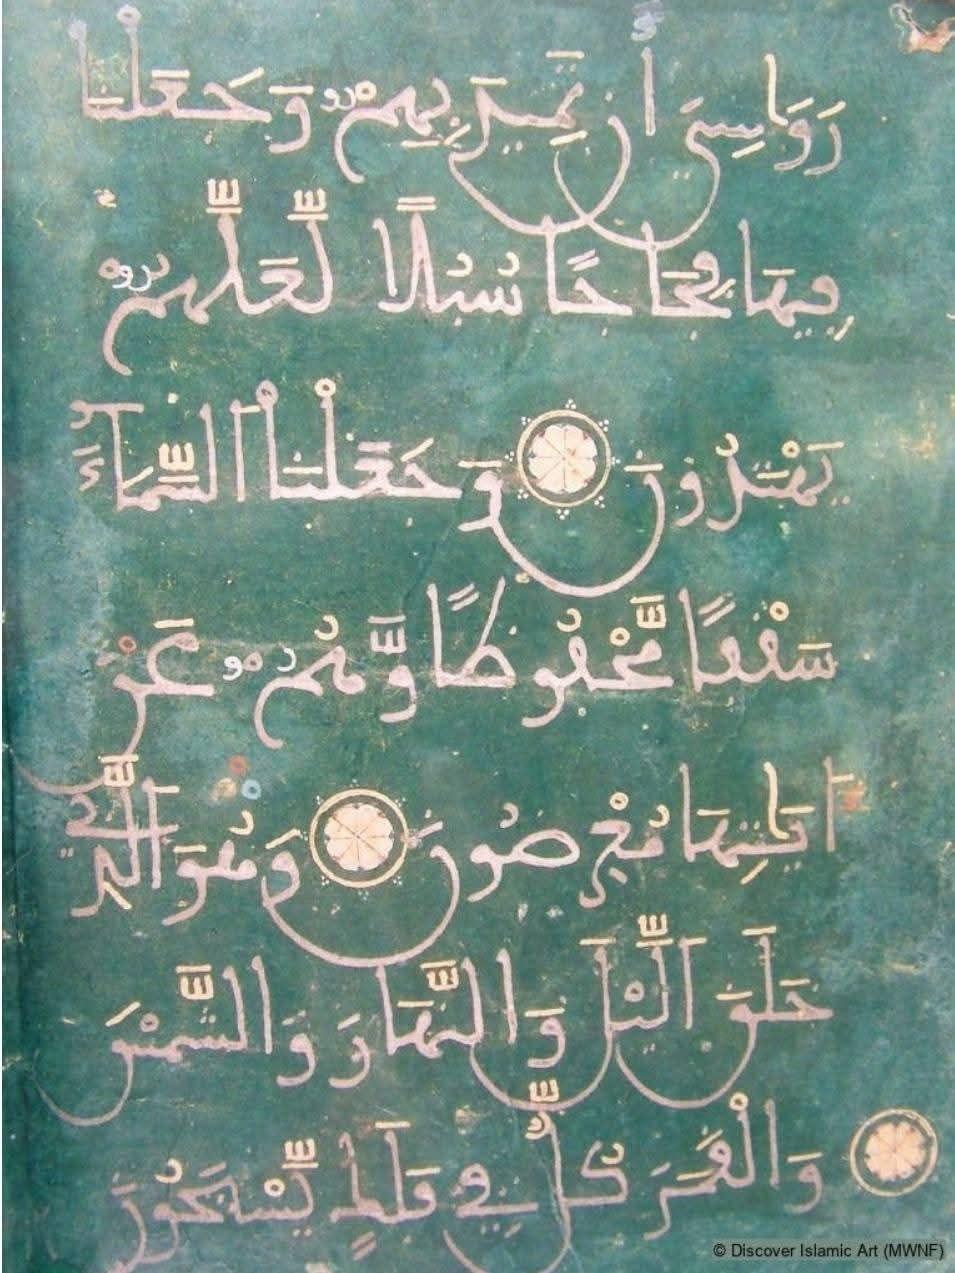 رَوَاسِيَ أَن تَمِيدَ بِهِمْ وَجَعَلْنَا
فِيهَا فِجَاجًا سُبُلًا لَّعَلَّهُمْ
يَهْتَدُونَ وَجَعَلْنَا السَّمَآءَ
سَقْفًا مَّحْفُوظًا وَّهُمْ عَنْ
ايَاتِهَا مُعْرِضُونَ وَهُوَ الَّذِي
خَلَقَ الَّيْلَ وَالنَّهَارَ وَالشَّمْسَ
وَالْقَمَرَ كُلٌّ فِي فَلَكٍ يَّسْبَحُونَ
© Discover Islamic Art (MWNF)